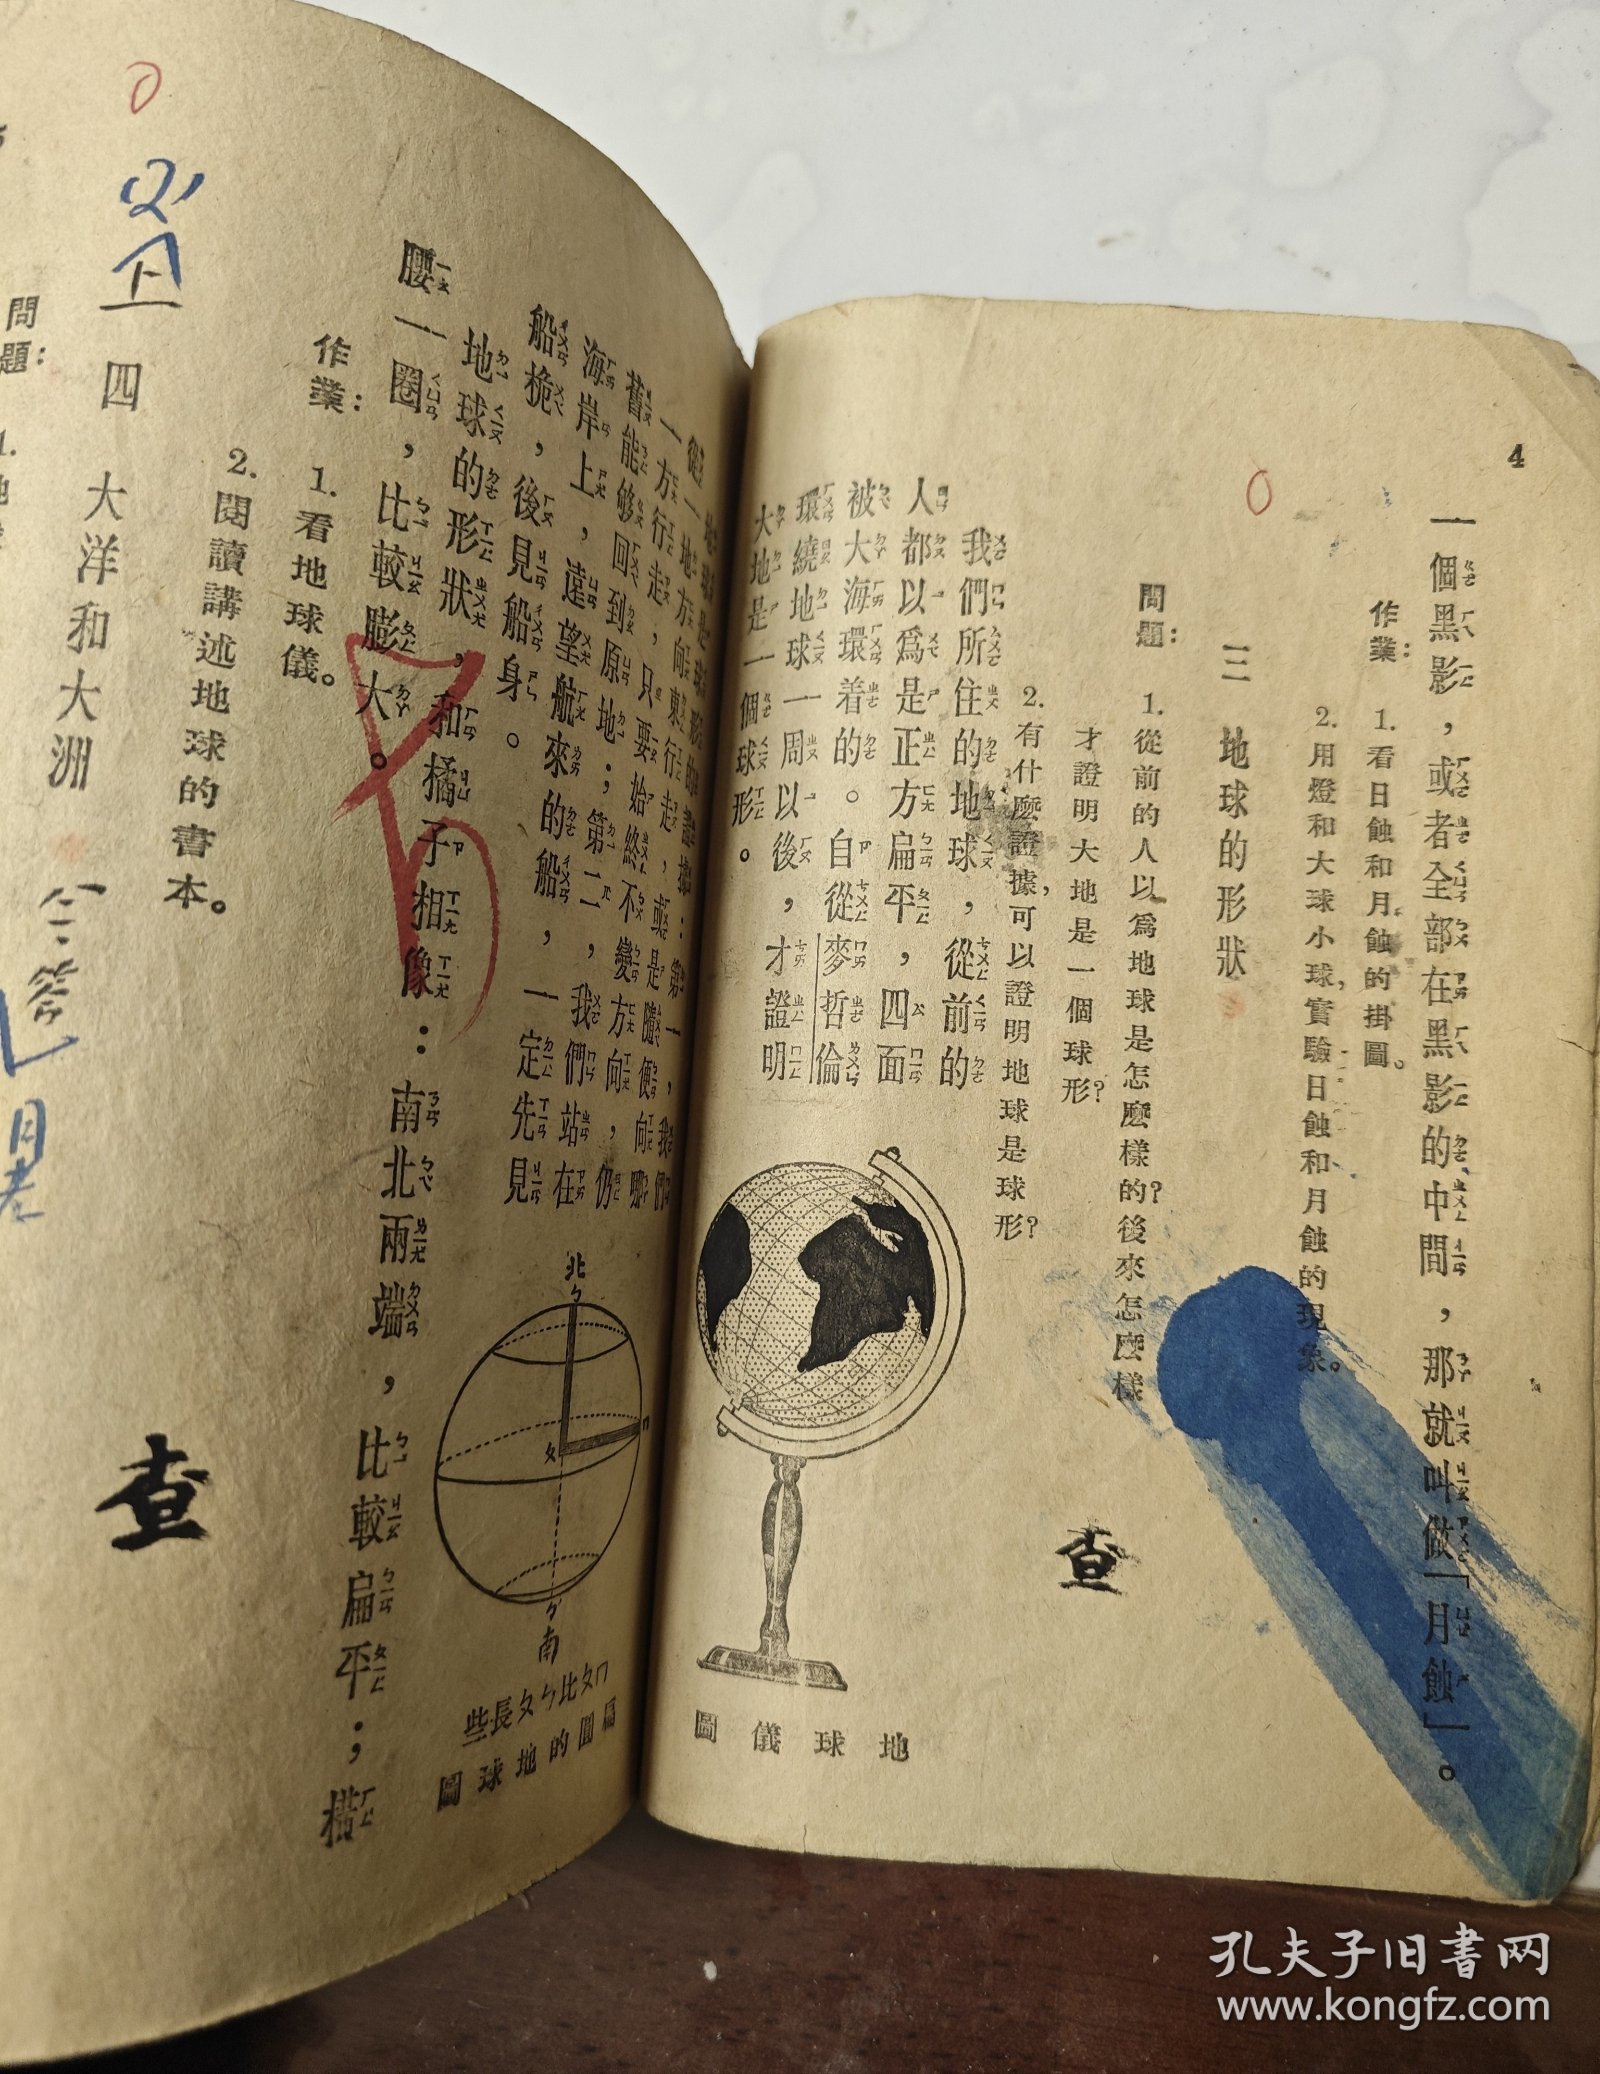 4
一個黑影,或者全部在黑影的中間,那就叫做「月蝕」。
作業:1.看日蝕和月蝕的掛圖。
2.用燈和大球小球,實驗日蝕和月蝕的現象。
三 地球的形狀
問題:1.從前的人以爲地球是怎麼樣的?後來怎麼樣
才證明大地是一個球形?
2.有什麼證據,可以證明地球是球形?
我們所住的地球,從前的
人都以爲是正方扁平,四面
被大海環着的。自從麥哲倫
環繞地球一周以後,才證明
大地是一個球形。
地球儀圖
查
地球是球形的證據:第一,我們
從一地方向東行走,或是隨便向哪
一方行走,只要始終不變方向,仍
舊能够回到原地;第二,我們站在
海岸上,遠望航來的船,一定先見
船桅,後見船身。
地球的形狀,和橘子相像:南北兩端,比較扁平;橫
腰一圈,比較膨大。
北ㄅ
ㄆ
ㄇ
ㄅ南
ㄇㄆ比ㄅㄆ長些
扁圓的地球圖
作業:1.看地球儀。
2.閱讀講述地球的書本。
四 大洋和大洲
查
問題:1.地球
孔夫子旧書网
www.kongfz.com